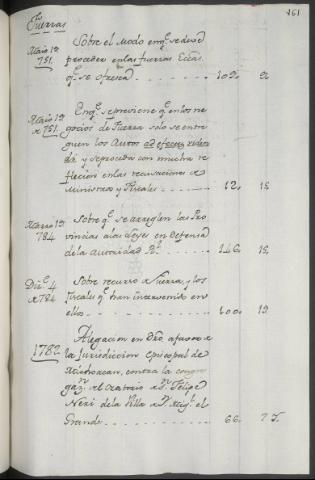 161
Fuerzas
Sobre el Modo enq.e se deve
Marzo 19 751. proceder enlas fuerzas Eccas.
q.e se ofrescan 109. 2
Enq.e se previene q.e en los ne
Marzo 19 de 751. gocios de Fuerza solo se entre
guen los Autos ad efectum videndi
dá y se proceda con mucha re
flecion en las recusaciones de
Ministros y Fiscales 12. 15
Marzo 19 784 Sobre q.e se arreglen las Pro
vincias alas Leyes en Defensa
de la Autoridad R.l 146. 15,
Dic.e 4 de 784 Sobre recurso de Fuerza, y los
Fiscales q.e han intervenido en
ellos 100. 19
1782 Alegacion en Dro. afavor de
la Jurisdiccion Episcopal de
Michoacan, contra la congre
gaz.n del Oratorio de S.n Felipe
Neri de la Villa de S.n Mig.l el
Grande 66. 7